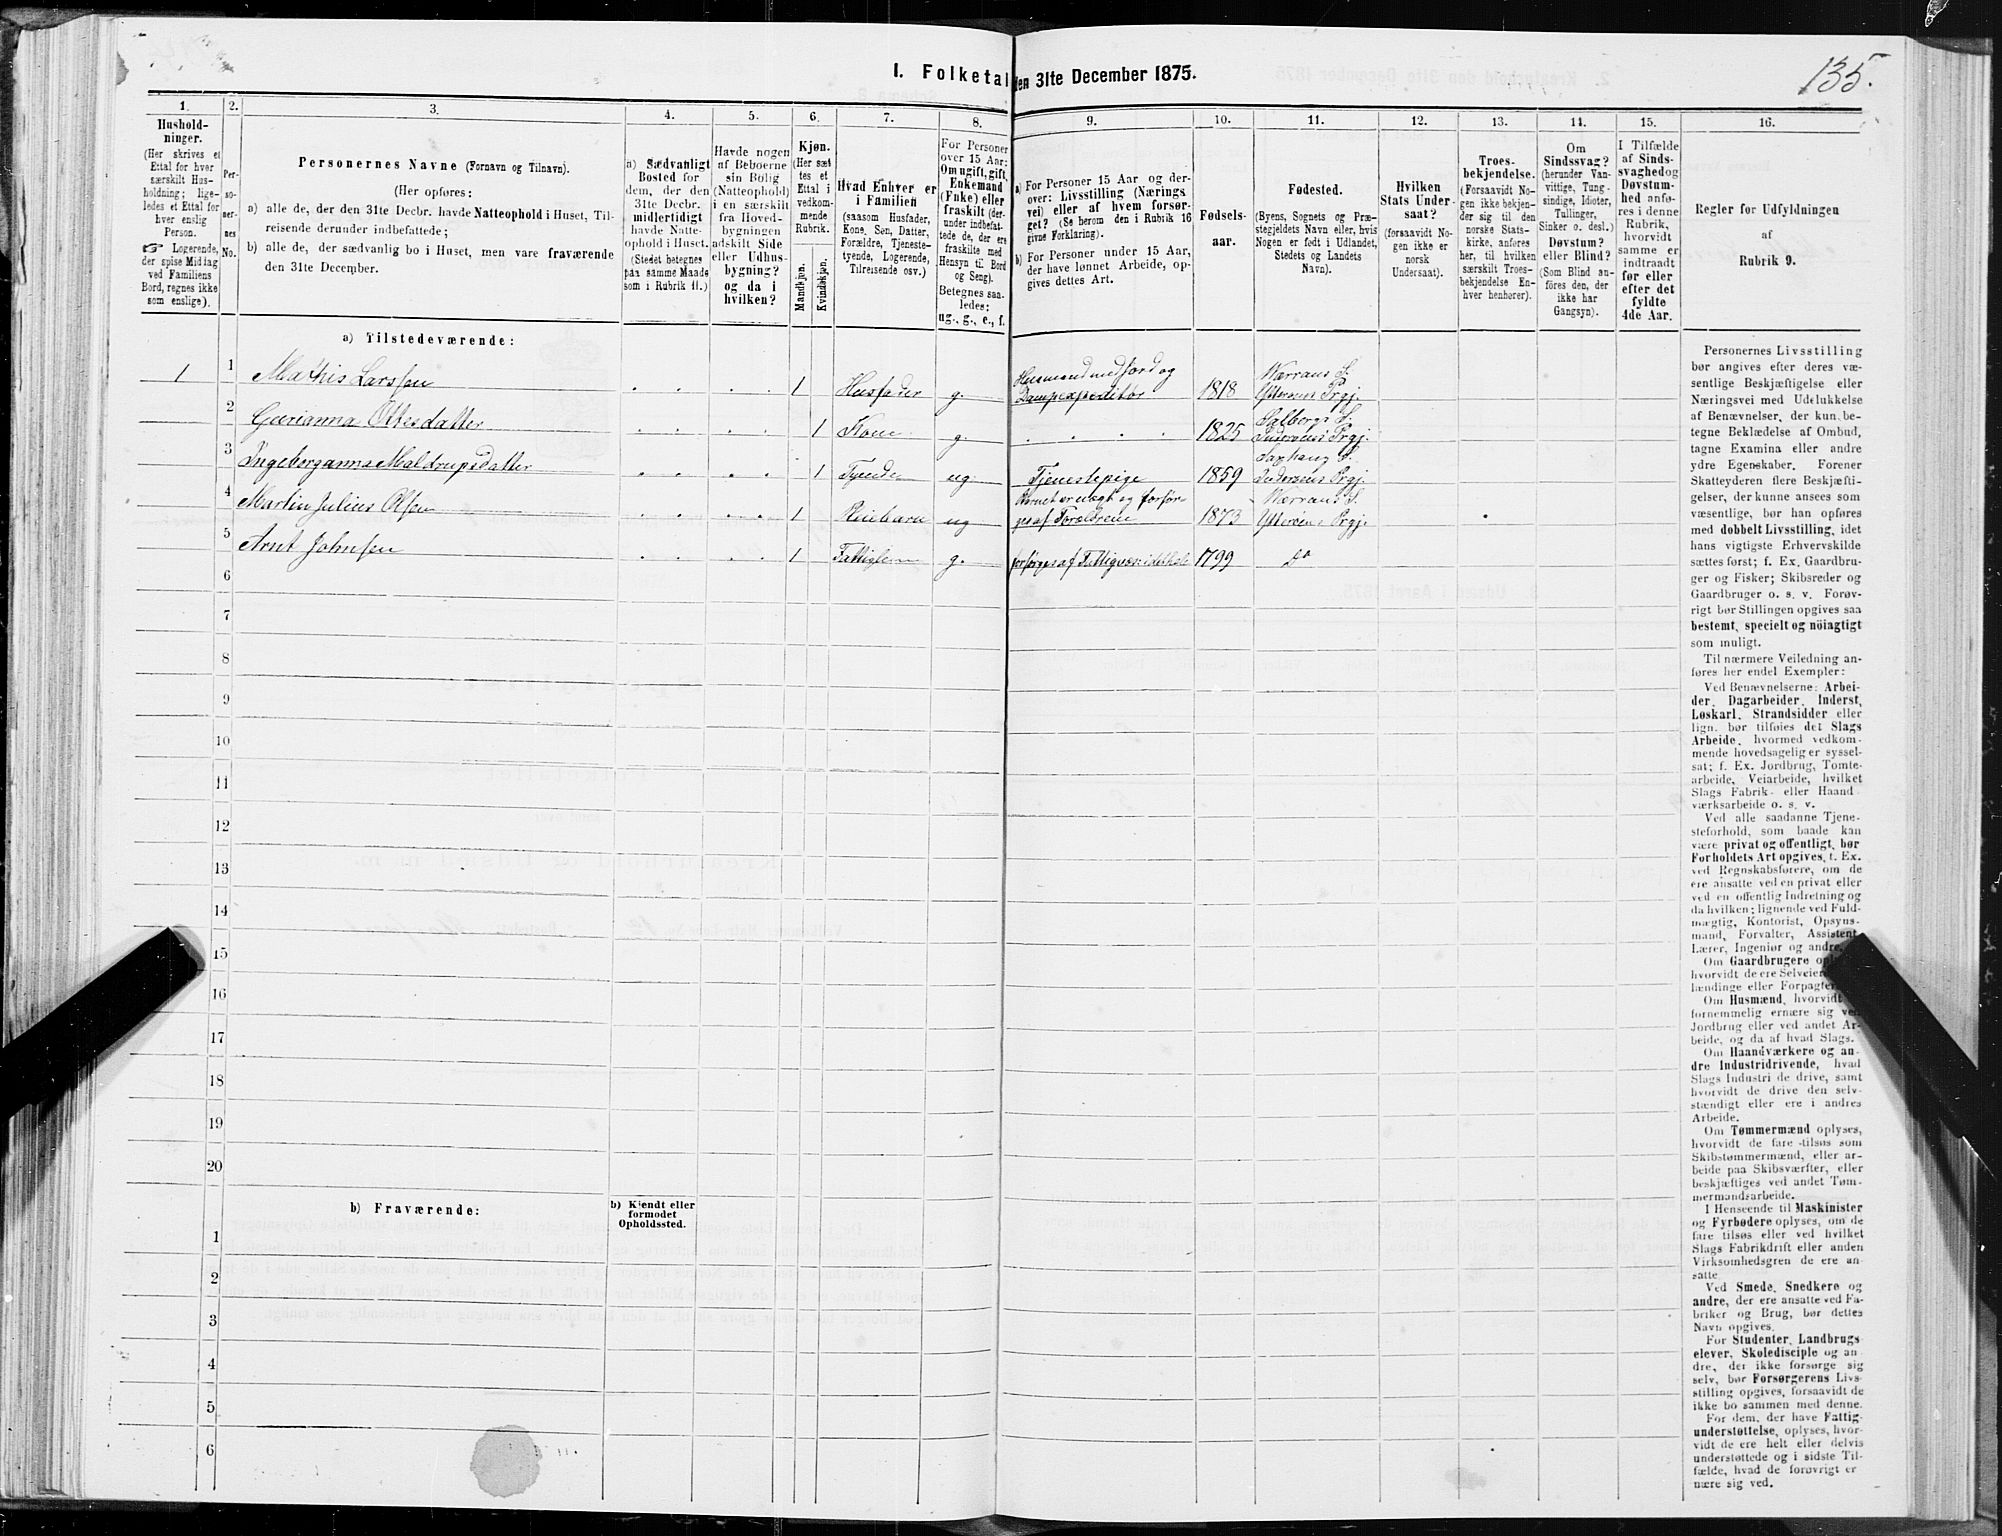 I. Folketal den 31te December 1875.
135.
1.
2.
3.
4.
5.
6.
7.
8.
9.
10.
11.
12.
13.
14.
15.
16.
Hushold-
ninger.
(Her skrives et
Ettal for hver
særskilt Hus-
holdning; lige-
ledes et Ettal for
hver enslig
Person.
☞ Logerende,
der spise Middag
ved Familiens
Bord, regnes ikke
som enslige).
Per-
so-
ner-
nes
No.
Personernes Navne (Fornavn og Tilnavn).
(Her opføres:
a) alle de, der den 31te Decbr. havde Natteophold i Huset, Til-
reisende derunder indbefattede;
b) alle de, der sædvanlig bo i Huset, men vare fraværende
den 31te December.
a) Sædvanligt
Bosted for
dem, der den
31te Decbr.
midlertidigt
havde Natte-
ophold i Huset.
(Stedet betegnes
paa samme Maade
som i Rubrik 11.)
Havde nogen
af Beboerne
sin Bolig
(Natteophold)
i en særskilt
fra Hoved-
bygningen
adskilt Side
eller Udhus-
bygning?
og da i
hvilken?
Kjøn.
(Her sæt-
tes et
Ettal i
vedkom-
mende
Rubrik.
Mandkjøn.
Kvindekjøn.
Hvad Enhver er
i Familien
(saasom Husfader,
Kone, Søn, Datter,
Forældre, Tjeneste-
tyende, Logerende,
Tilreisende osv.)
For Personer
over 15 Aar:
Om ugift, gift,
Enkemand
(Enke) eller
fraskilt (der-
under indbefat-
tede de, der ere
fraskilte med
Hensyn til Bord
og Seng).
Betegnes saa-
ledes:
ug., g., e., f.
a) For Personer 15 Aar og der-
over: Livsstilling (Nærings-
vei) eller af hvem forsør-
get? (Se herom den i Rubrik 16
givne Forklaring).
b) For Personer under 15 Aar,
der have lønnet Arbeide, op-
gives dettes Art.
Fødsels-
aar.
Fødested.
(Byens, Sognets og Præ-
stegjeldets Navn eller, hvis
Nogen er født i Udlandet,
Stedets og Landets
Navn).
Hvilken
Stats Under-
saat?
(forsaavidt No-
gen ikke er
norsk
Undersaat).
Troes-
bekjendelse.
(Forsaavidt No-
gen ikke bekjen-
der sig til den
norske Stats-
kirke, anføres
her, til hvilken
særskilt Troes-
bekjendelse En-
hver henhører).
Om
Sindssvag?
(herunder Van-
vittige, Tung-
sindige, Idioter,
Tullinger,
Sinker o. desl.)
Døvstum?
eller Blind?
(Som Blind an-
føres den, der
ikke har
Gangsyn).
I Tilfælde
af Sinds-
svaghed og
Døvstum-
hed anfø-
res i denne
Rubrik,
hvorvidt
samme er
indtraadt
før eller
efter det
fyldte
4de Aar.
Regler for Udfyldningen
af
Rubrik 9.
a) Tilstedeværende:
1 1 Mathis Larssen 1 Husfader g. Husmand med Jord og Dampexpeditør 1818 Werrans S. Ytterøens Prgj.
2 Gurianna Ottesdatter 1 Kone g. 1825 Salbergs S. Inderøens Prgj.
3 Ingeborganna Maldrupsdatter 1 Tyende ug Tjenestepige 1859 Saxhaug S. Inderøens Prgj.
4 Martin Julius Olsen 1 Pleiebarn ug Barnet er uægt og forsør- ges af Forældrene 1873 Werrans S. Ytterøens Prgj.
5 Arnt Johnsen 1 Fattiglem g. forsørges af Fattigvæs. i det hele 1799 do
6
7
8
9
10
11
12
13
14
15
16
17
18
19
20
b) Fraværende:
b) Kjendt eller
formodet
Opholdssted.
1
2
3
4
5
6
Personernes Livsstilling
bør angives efter deres væ-
sentlige Beskjæftigelse eller
Næringsvei med Udelukkelse
af Benævnelser, der kun be-
tegne Beklædelse af Ombud,
tagne Examina eller andre
ydre Egenskaber. Forener
Skatteyderen flere Beskjæfti-
gelser, der kunne ansees som
væsentlige, bør han opføres
med dobbelt Livsstilling, idet
hans vigtigste Erhvervskilde
sættes først; f. Ex. Gaardbru-
ger og Fisker; Skibsreder og
Gaardbruger o. s. v. Forøv-
rigt bør Stillingen opgives saa
bestemt, specielt og nöiagtigt
som muligt.
Til nærmere Veiledning an-
føres her endel Exempler:
Ved Benævnelserne: Arbei-
der, Dagarbeider, Inderst,
Løskarl, Strandsidder eller
lign. bør tilføies det Slags
Arbeide, hvormed vedkom-
mende hovedsagelig er syssel-
sat; f. Ex. Jordbrug, Tomte-
arbeide, Veiarbeide, hvilket
Slags Fabrik- eller Haand-
værksarbeide o. s. v.
Ved alle saadanne Tjene-
steforhold, som baade kan
være privat og offentligt, bør
Forholdets Art opgives, f. Ex.
ved Regnskabsførere, om de
ere ansatte ved en privat eller
ved en offentlig Indretning og
da hvilken; lignende ved Fuld-
mægtig, Kontorist, Opsyns-
mand, Forvalter, Assistent,
Lærer, Ingeniør og andre.
Om Gaardbrugere
hvorvidt de ere Selveiere
lændinge eller Forpagtere.
Om Husmænd, hvorvidt
fornemmelig ernære sig ved
Jordbrug eller ved andet Ar-
beide, og da af hvad Slags.
Om Haandværkere og an-
dre Industridrivende, hvad
Slags Industri de drive, samt
hvorvidt de drive den selv-
stændigt eller ere i andres
Arbeide.
Om Tømmermænd oplyses,
hvorvidt de fare tilsøs som
Skibstømmermænd, eller ar-
beide paa Skibsværfter, eller
beskjæftiges ved andet Tøm-
mermandsarbeide.
I Henseende til Maskinister
og Fyrbødere oplyses, om de
fare tilsøs eller ved hvilket
Slags Fabrikdrift eller anden
Virksomhedsgren de ere an-
satte.
Ved Smede, Snedkere og
andre, der ere ansatte ved Fa-
briker og Brug, bør dettes
Navn opgives.
For Studenter, Landbrugs-
elever, Skoledisciple og an-
dre, der ikke forsørge sig
selv, bør Forsørgerens Livs-
stilling opgives, forsaavidt de
ikke bo sammen med denne.
For dem, der have Fattig-
understøttelse, oplyses, hvor-
vidt de ere helt eller delvis
understøttede og i sidste Til-
fælde, hvad de forøvrigt er-
nære sig ved.